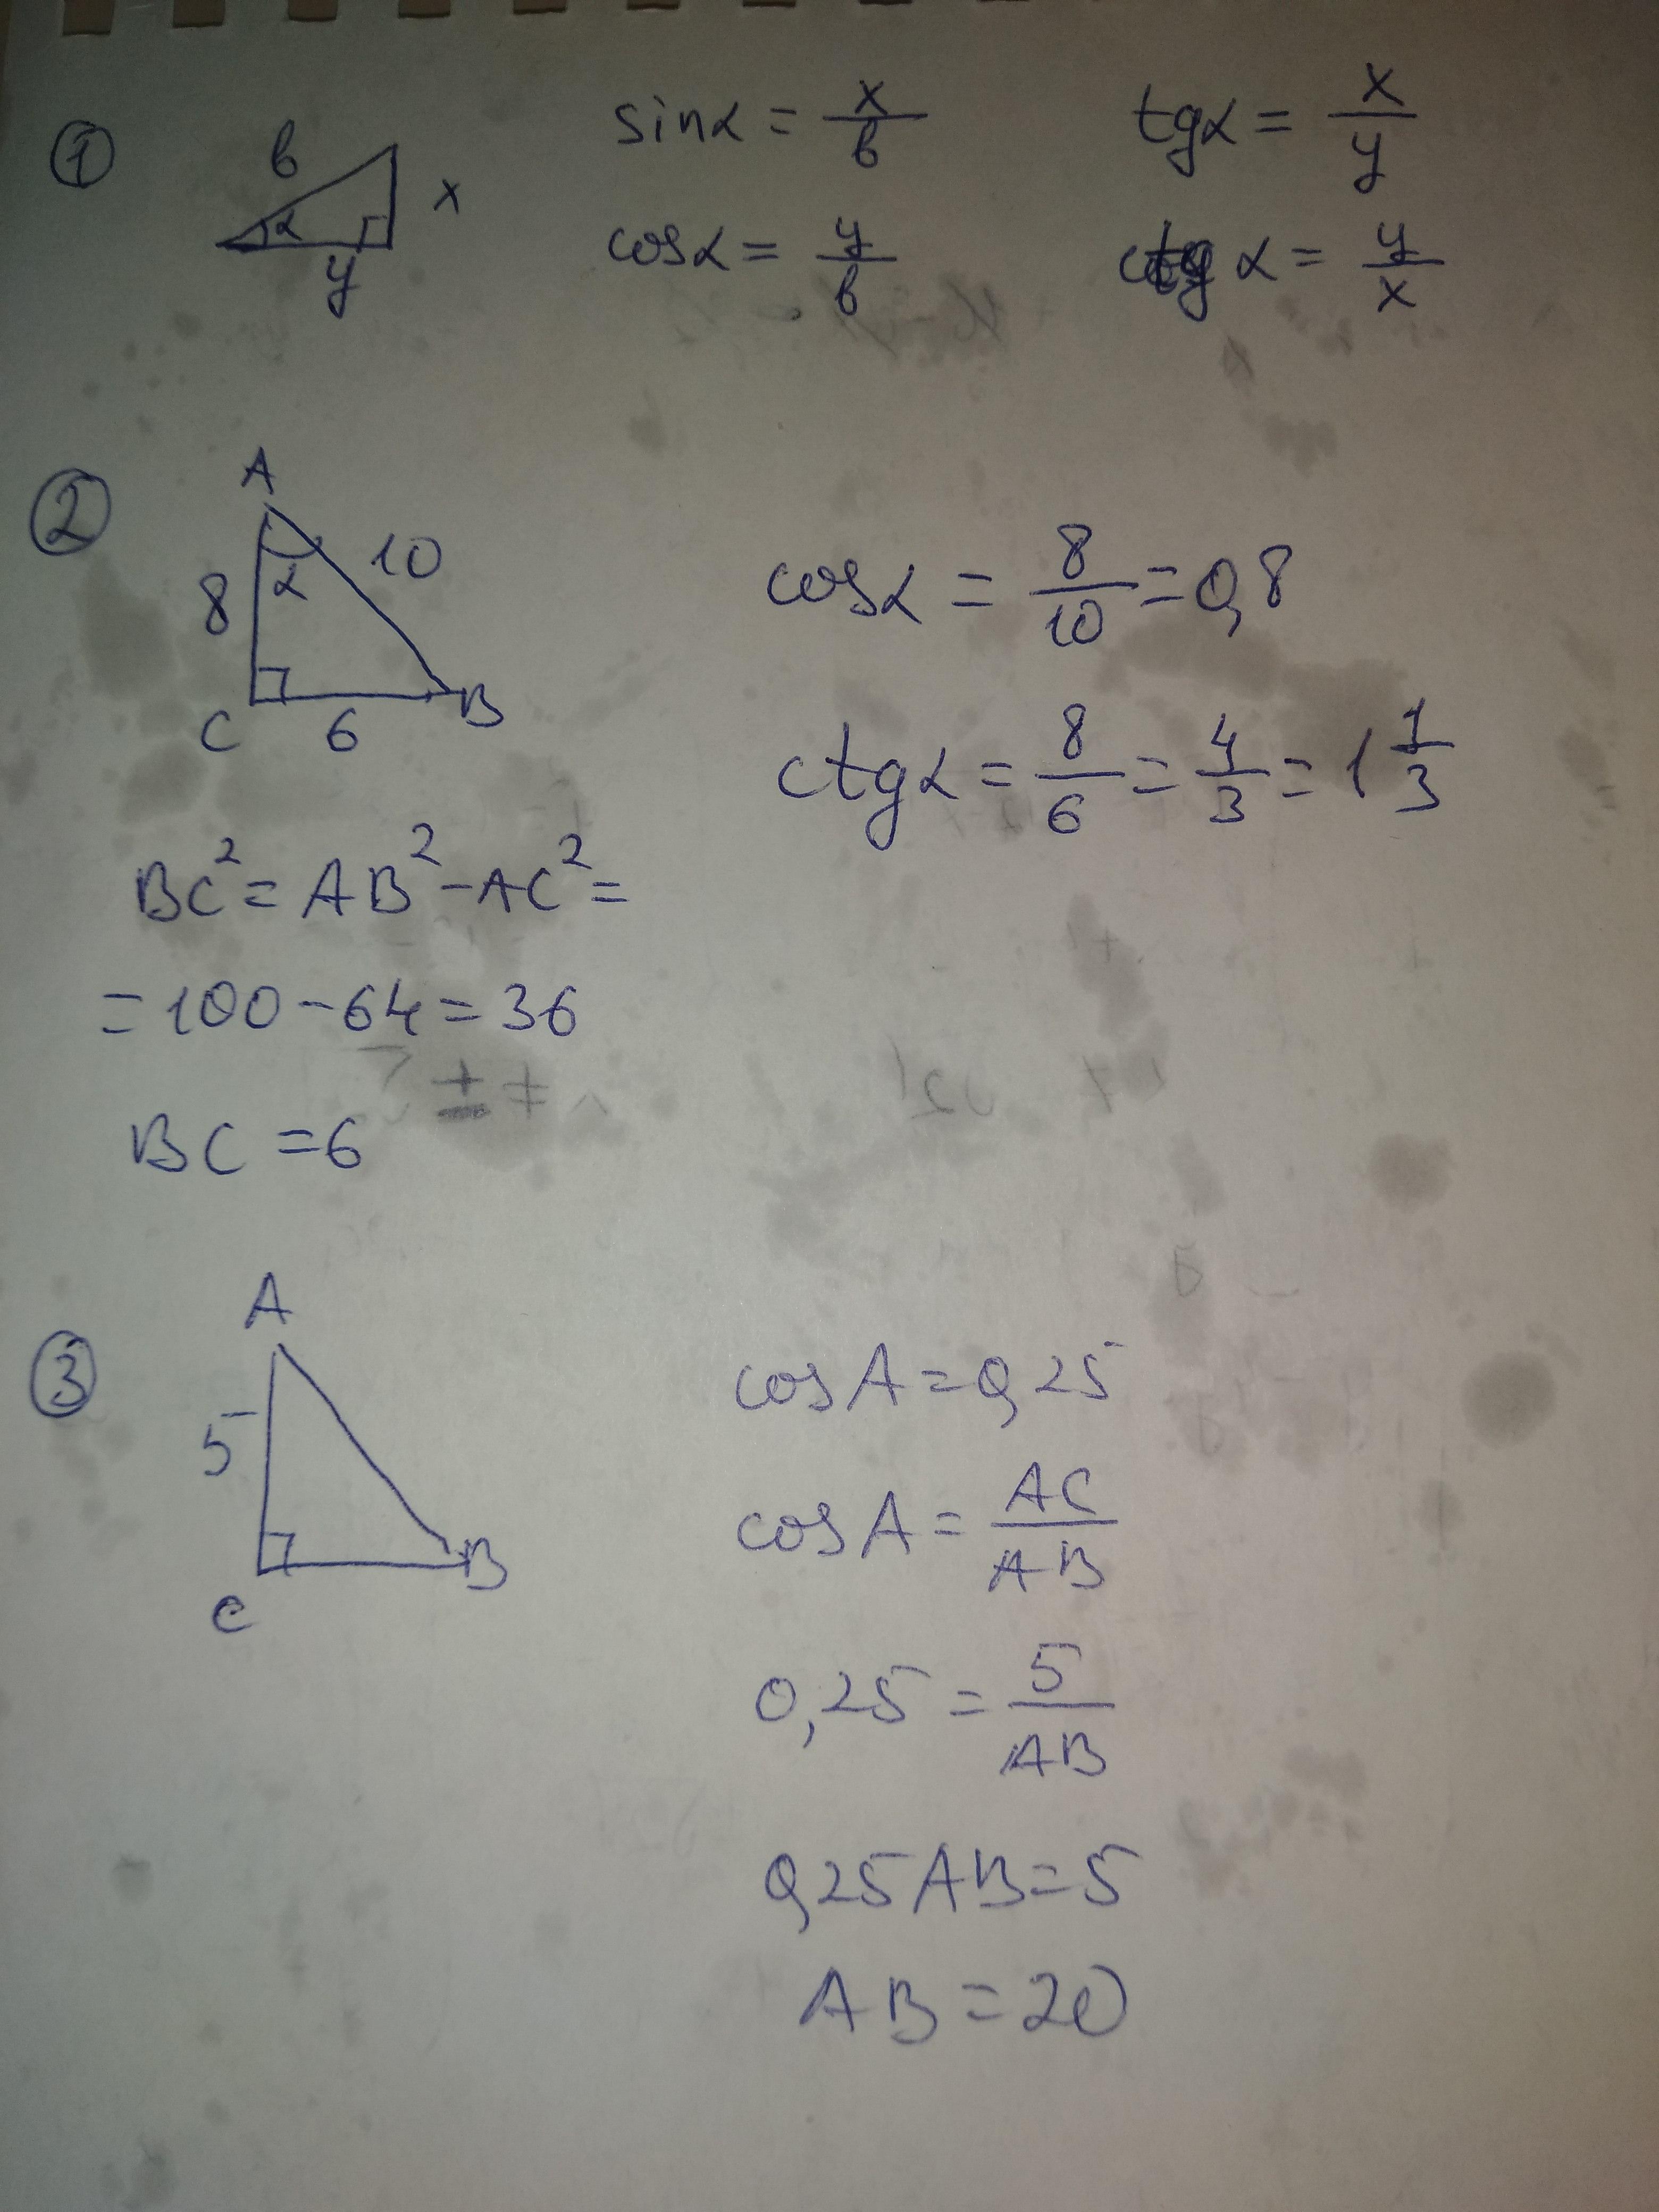 1
в
α
x
y
sinα = x/в
tgα = x/y
cosα = y/в
ctg α = y/x
2
A
8
α
10
C 6 B
cosα = 8/10 = 0,8
ctgα = 8/6 = 4/3 = 1 1/3
BC² = AB² - AC² =
= 100 - 64 = 36
BC = 6
3
A
5
C
B
cos A = 0,25
cos A = AC/AB
0,25 = 5/AB
0,25 AB = 5
AB = 20